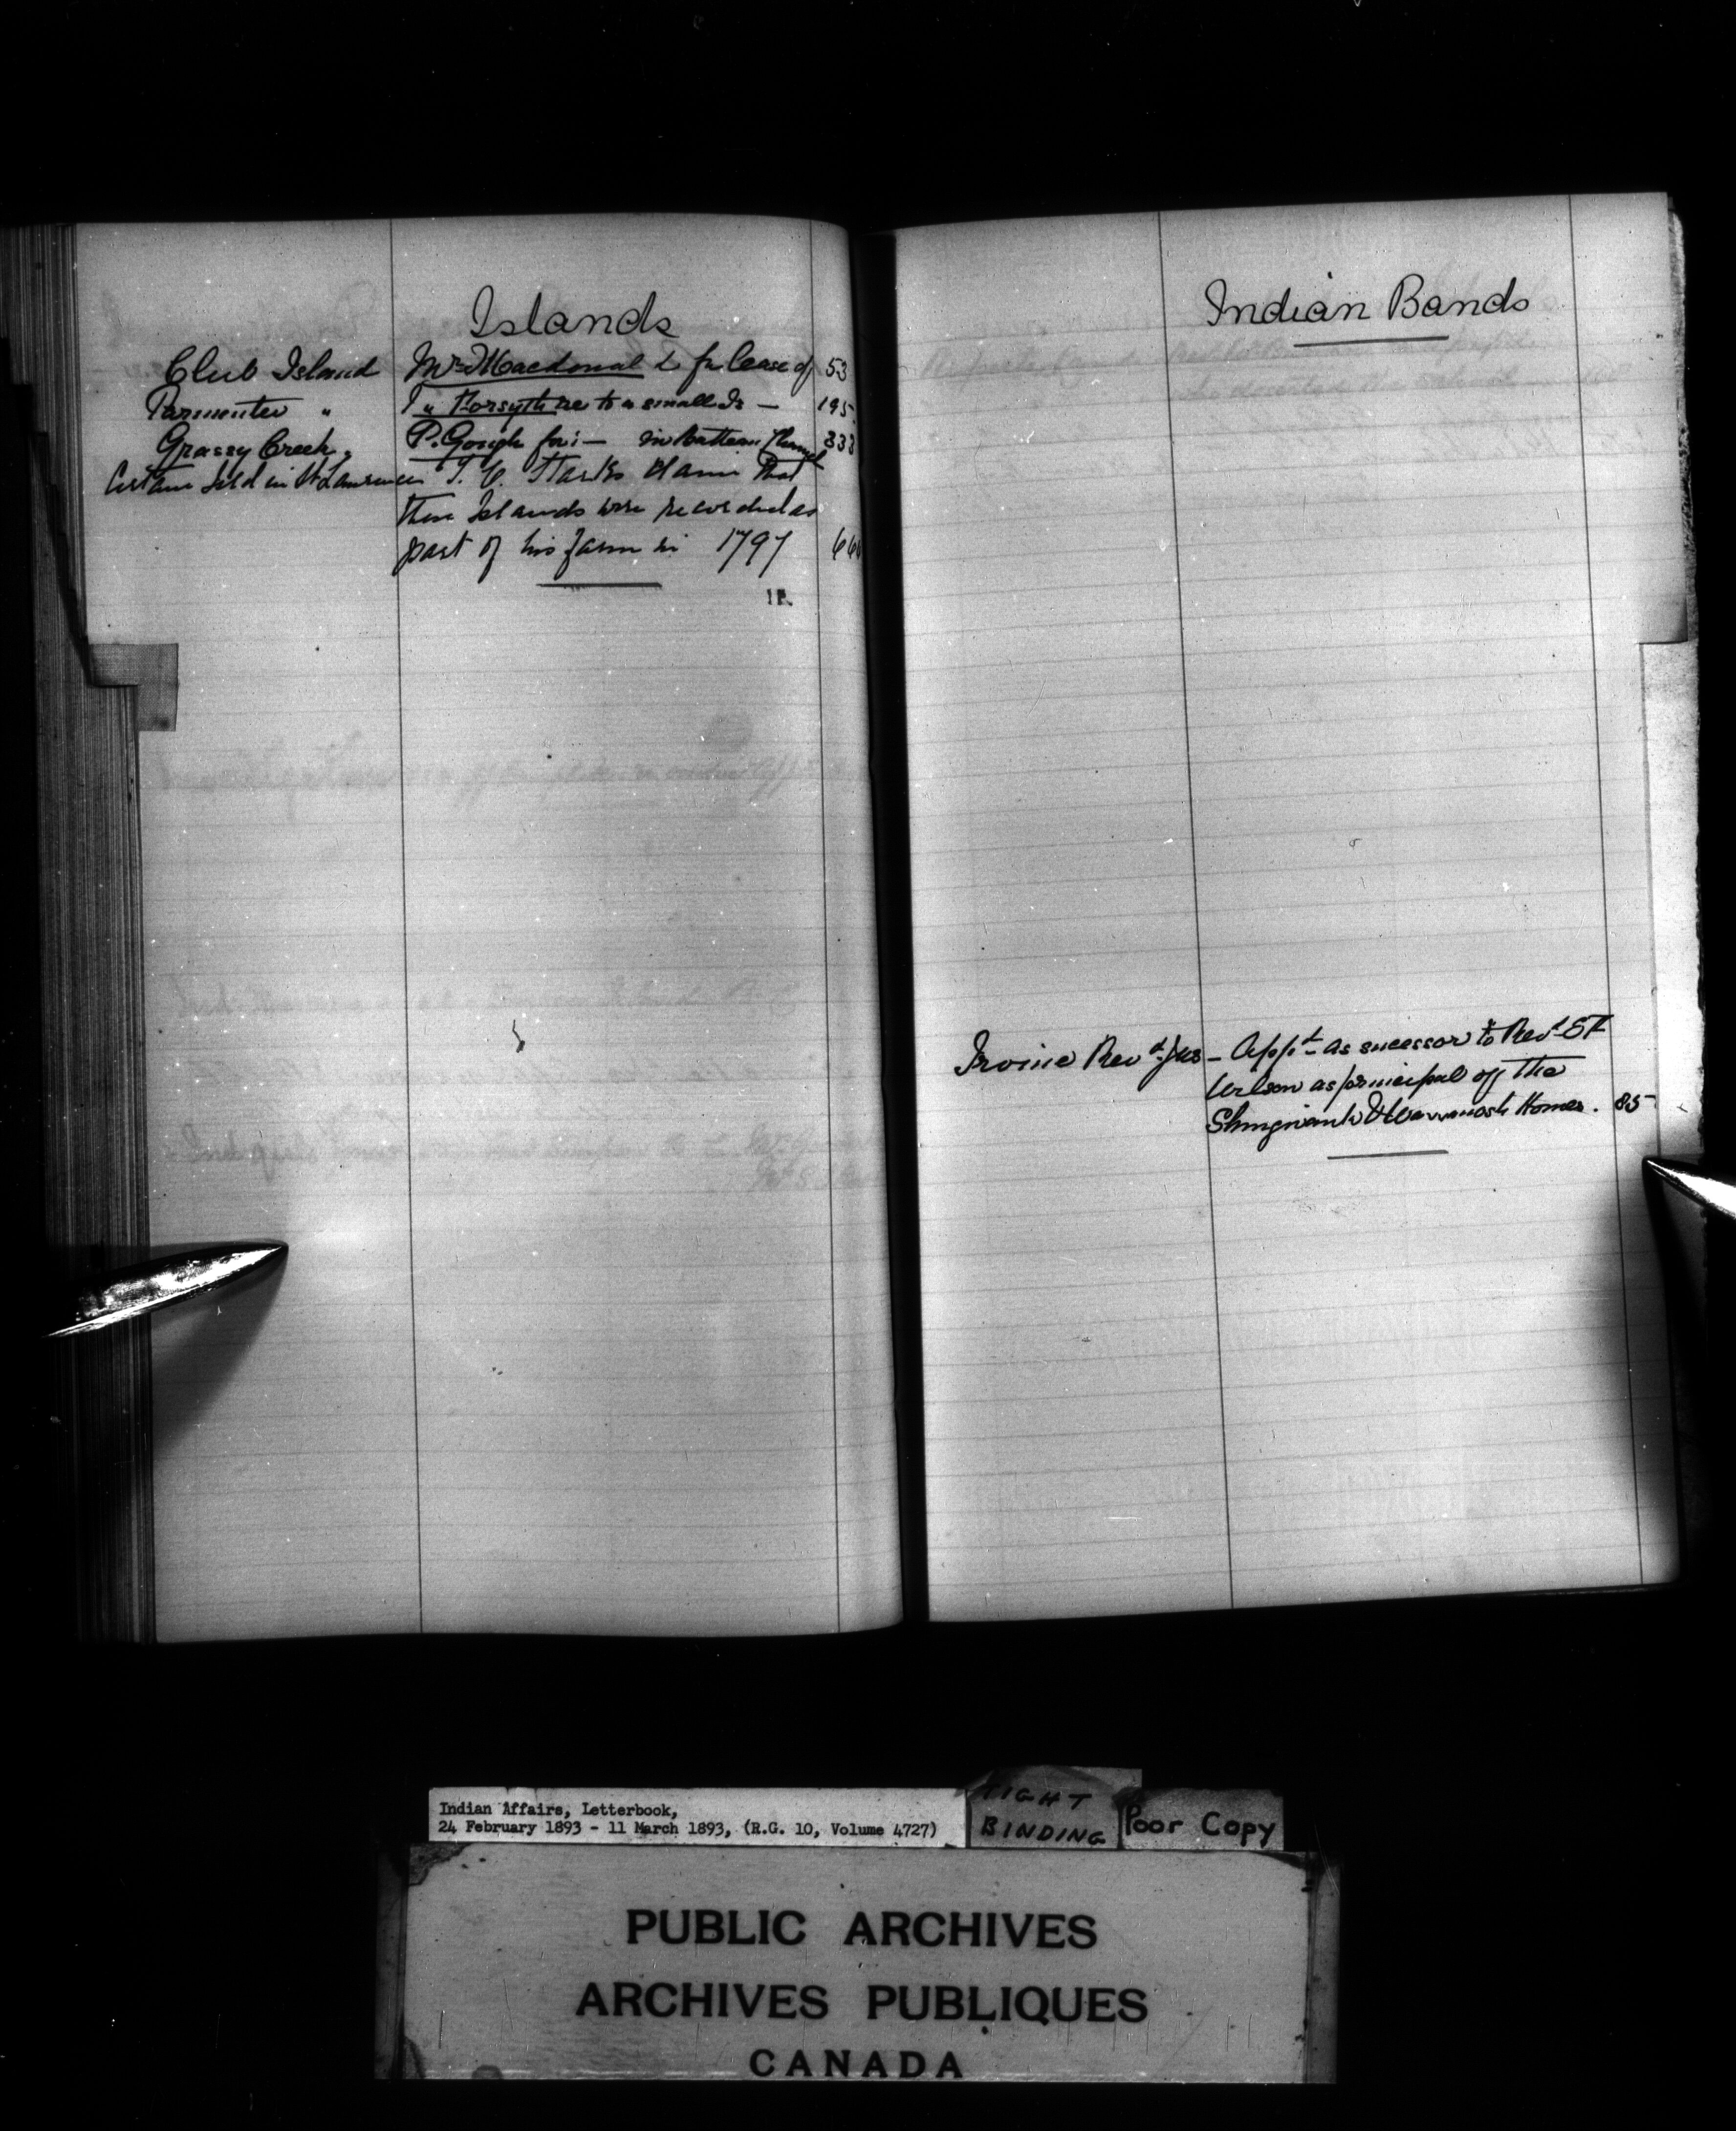 Islands
Club Island Mr Macdonald for lease of 53
Parmenter " Forsyth re to a small Is — 195
Grassy Creek " P. Gough for :— in Batteau Channel 333
Certain Isld in St Lawrence T. C. Starks claim that
these Islands were recorded as
part of his farm in 1797
Indian Bands
Irvine Revd Jas — Appd as sucessor to Revd E F
Wilson as principal of the
Shingwauk & Wawanosh Homes. 85
Indian Affairs, Letterbook,
24 February 1893 - 11 March 1893, (R.G. 10, Volume 4727)
TIGHT
BINDING
Poor Copy
PUBLIC ARCHIVES
ARCHIVES PUBLIQUES
CANADA